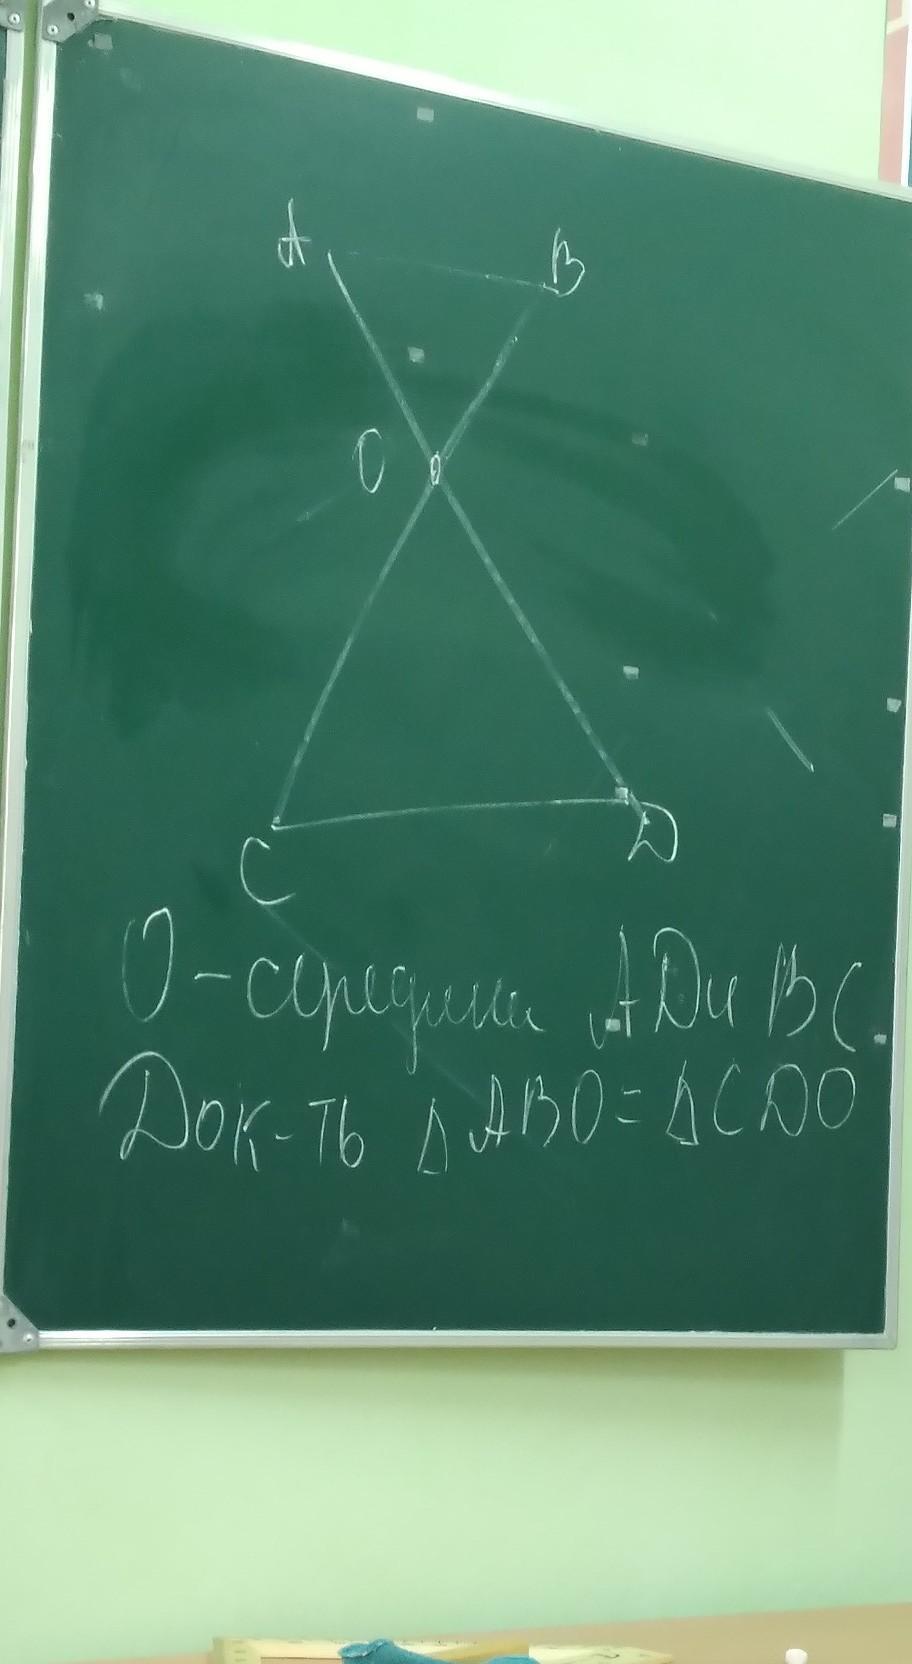 A
B
O
C
D
O - середина AD и BC
Док-ть Δ ABO = Δ CDO